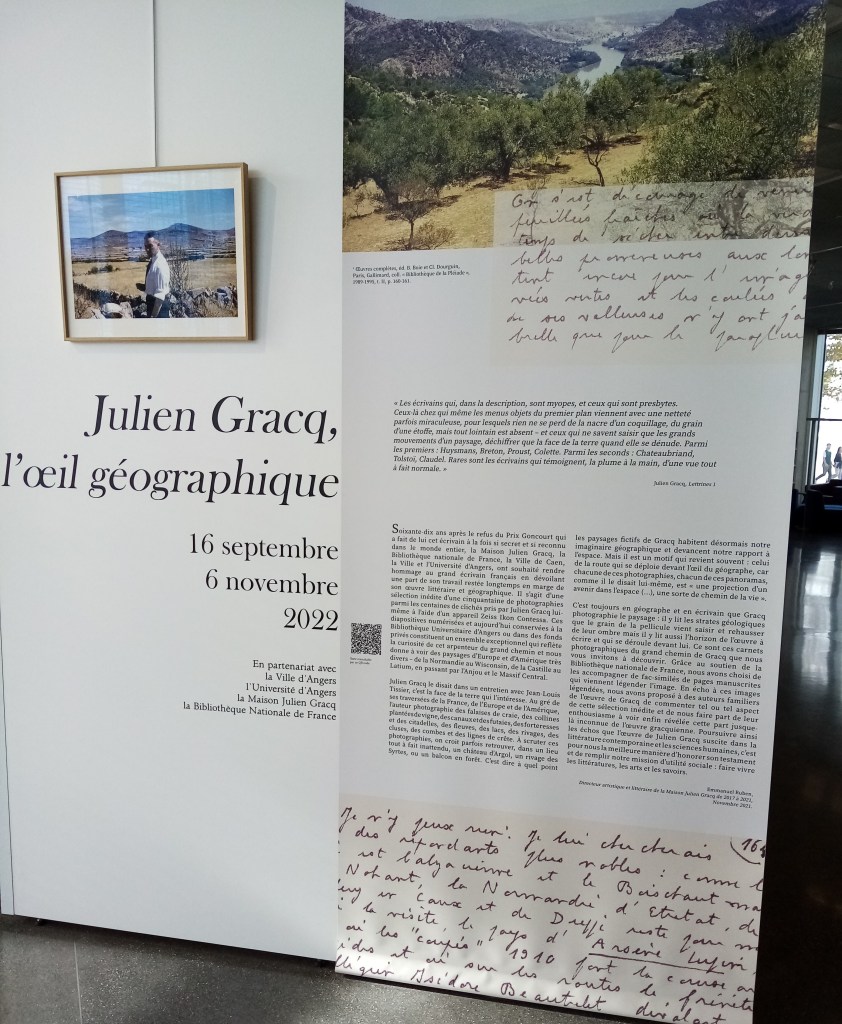 Julien Gracq,
l'œil géographique
16 septembre
6 novembre
2022
En partenariat avec
la Ville d'Angers
l'Université d'Angers
la Maison Julien Gracq
la Bibliothèque Nationale de France
On s'est
temps de
¹ Œuvres complètes, éd. B. Boie et Cl. Dourguin,
Paris, Gallimard, coll. « Bibliothèque de la Pléiade »,
1989-1995, t. II, p. 160-161.
« Les écrivains qui, dans la description, sont myopes, et ceux qui sont presbytes.
Ceux-là chez qui même les menus objets du premier plan viennent avec une netteté
parfois miraculeuse, pour lesquels rien ne se perd de la nacre d'un coquillage, du grain
d'une étoffe, mais tout lointain est absent – et ceux qui ne savent saisir que les grands
mouvements d'un paysage, déchiffrer que la face de la terre quand elle se dénude. Parmi
les premiers : Huysmans, Breton, Proust, Colette. Parmi les seconds : Chateaubriand,
Tolstoï, Claudel. Rares sont les écrivains qui témoignent, la plume à la main, d'une vue tout
à fait normale. »
Julien Gracq, Lettrines 1
Soixante dix ans après le refus du Prix Goncourt qui
a fait de lui cet écrivain à la fois si secret et si reconnu
dans le monde entier, la Maison Julien Gracq, la
Bibliothèque nationale de France, la Ville de Caen,
la Ville et l'Université d'Angers, ont souhaité rendre
hommage au grand écrivain français en dévoilant
une part de son travail restée longtemps en marge de
son œuvre littéraire et géographique. Il s'agit d'une
sélection inédite d'une cinquantaine de photographies
parmi les centaines de clichés pris par Julien Gracq lui-
même à l'aide d'un appareil Zeiss Ikon Contessa. Ces
diapositives numérisées et aujourd'hui conservées à la
Bibliothèque Universitaire d'Angers ou dans des fonds
privés constituent un ensemble exceptionnel qui reflète
la curiosité de cet arpenteur du grand chemin et nous
donne à voir des paysages d'Europe et d'Amérique très
divers – de la Normandie au Wisconsin, de la Castille au
Latium, en passant par l'Anjou et le Massif Central.
Julien Gracq le disait dans un entretien avec Jean-Louis
Tissier, c'est la face de la terre qui l'intéresse. Au gré de
ses traversées de la France, de l'Europe et de l'Amérique,
l'auteur photographie des falaises de craie, des collines
plantées de vigne, des canaux et des futaies, des forteresses
et des citadelles, des fleuves, des lacs, des rivages, des
cluses, des combes et des lignes de crête. À scruter ces
photographies, on croit parfois retrouver, dans un lieu
tout à fait inattendu, un château d'Argol, un rivage des
Syrtes, ou un balcon en forêt. C'est dire à quel point
les paysages fictifs de Gracq habitent désormais notre
imaginaire géographique et devancent notre rapport à
l'espace. Mais il est un motif qui revient souvent : celui
de la route qui se déploie devant l'œil du géographe, car
chacune de ces photographies, chacun de ces panoramas,
comme il le disait lui-même, est « une projection d'un
avenir dans l'espace (...), une sorte de chemin de la vie ».
C'est toujours en géographe et en écrivain que Gracq
photographie le paysage : il y lit les strates géologiques
que le grain de la pellicule vient saisir et rehausser
de leur ombre mais il y lit aussi l'horizon de l'œuvre à
écrire et qui se déroule devant lui. Ce sont ces carnets
photographiques du grand chemin de Gracq que nous
vous invitons à découvrir. Grâce au soutien de la
Bibliothèque nationale de France, nous avons choisi de
les accompagner de fac-similés de pages manuscrites
qui viennent légender l'image. En écho à ces images
légendées, nous avons proposé à des auteurs familiers
de l'œuvre de Gracq de commenter tel ou tel aspect
de cette sélection inédite et de nous faire part de leur
enthousiasme à voir enfin révélée cette part jusque-
là inconnue de l'œuvre gracquienne. Poursuivre ainsi
les échos que l'œuvre de Julien Gracq suscite dans la
littérature contemporaine et les sciences humaines, c'est
pour nous la meilleure manière d'honorer son testament
et de remplir notre mission d'utilité sociale : faire vivre
les littératures, les arts et les savoirs.
Emmanuel Ruben,
Directeur artistique et littéraire de la Maison Julien Gracq de 2017 à 2021,
Novembre 2021.
Je n'y peux rien. Je lui chercherais 164
des répondants plus nobles : comme
est balzacienne et le Boischaut
Nohant, la Normandie d'Etretat, de
Caux et de Dieppe reste pour
la visite, le pays d'Arsène Lupin
où les "coupés" 1910 font la course
et où sur les routes
Isidore Beautrelet